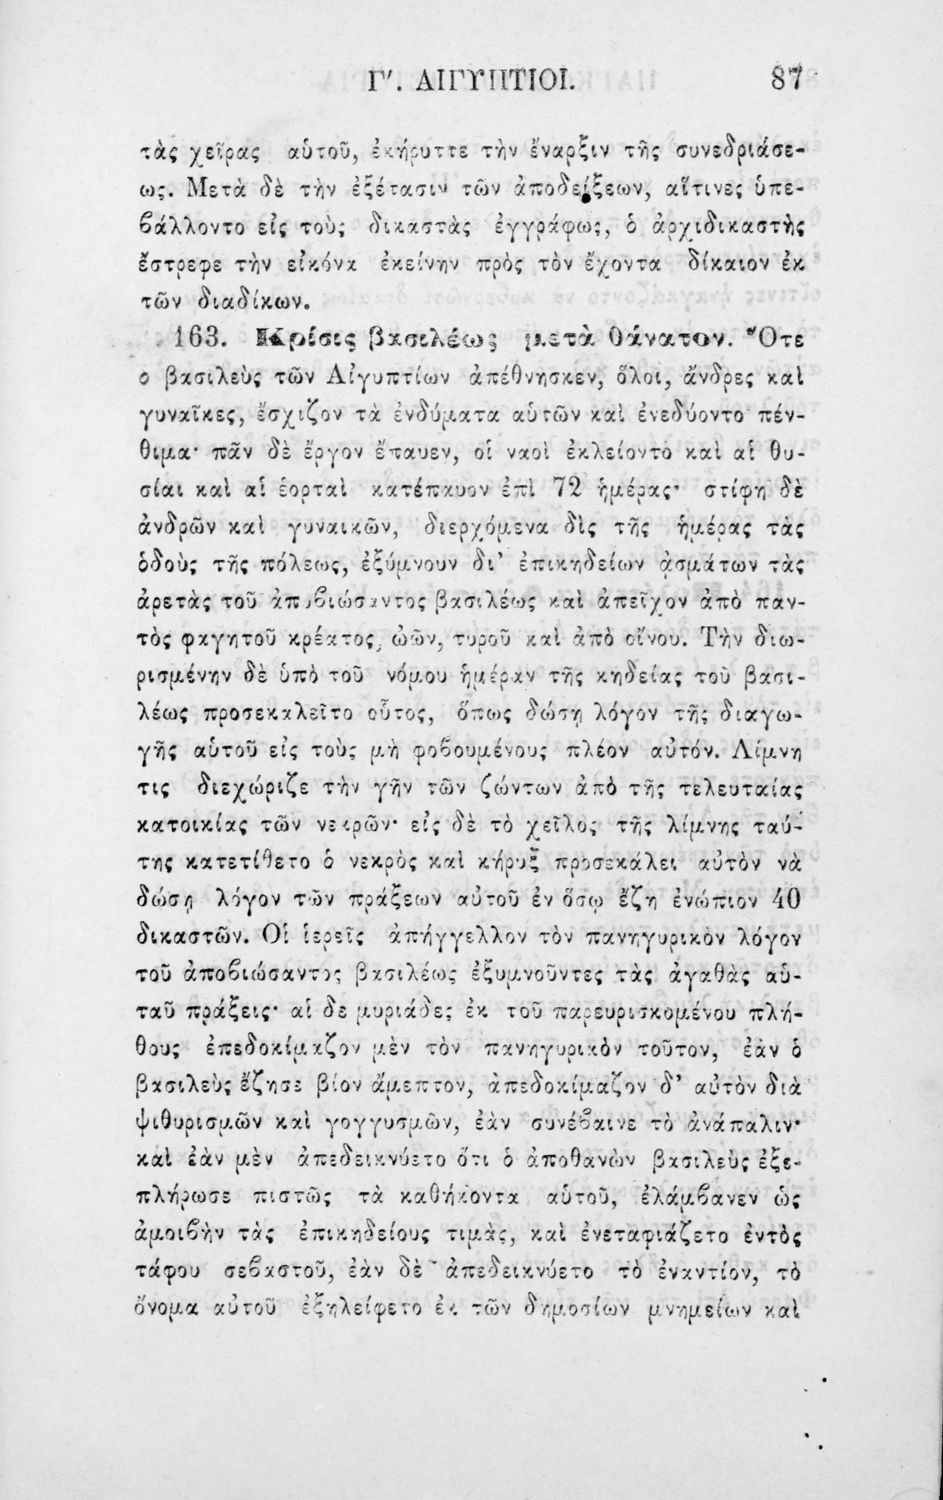 Γ′. ΑΙΓΥΠΤΙΟΙ. 87
τὰς χεῖρας αὑτοῦ, ἐκήρυττε τὴν ἔναρξιν τῆς συνεδριάσε-
ως. Μετὰ δὲ τὴν ἐξέτασιν τῶν ἀποδείξεων, αἵτινες ὑπε-
βάλλοντο εἰς τοὺς δικαστὰς ἐγγράφως, ὁ ἀρχιδικαστὴς
ἔστρεφε τὴν εἰκόνα ἐκείνην πρὸς τὸν ἔχοντα δίκαιον ἐκ
τῶν διαδίκων.
163. Κρίσις βασιλέως μετὰ θάνατον. Ὅτε
ο βασιλεὺς τῶν Αἰγυπτίων ἀπέθνησκεν, ὅλοι, ἄνδρες καὶ
γυναῖκες, ἔσχιζον τὰ ἐνδύματα αὑτῶν καὶ ἐνεδύοντο πέν-
θιμα· πᾶν δὲ ἔργον ἔπαυεν, οἱ ναοὶ ἐκλείοντο καὶ αἱ θυ-
σίαι καὶ αἱ ἑορταὶ κατέπαυον ἐπὶ 72 ἡμέρας· στίφη δὲ
ἀνδρῶν καὶ γυναικῶν, διερχόμενα δὶς τῆς ἡμέρας τὰς
ὁδοὺς τῆς πόλεως, ἐξύμνουν δι’ ἐπικηδείων ᾀσμάτων τὰς
ἀρετὰς τοῦ ἀποβιώσαντος βασιλέως καὶ ἀπεῖχον ἀπὸ παν-
τὸς φαγητοῦ κρέατος, ὠῶν, τυροῦ καὶ ἀπὸ οἴνου. Τὴν διω-
ρισμένην δὲ ὑπὸ τοῦ νόμου ἡμέραν τῆς κηδείας τοῦ βασι-
λέως προσεκαλεῖτο οὗτος, ὅπως δώσῃ λόγον τῆς διαγω-
γῆς αὑτοῦ εἰς τοὺς μὴ φοβουμένους πλέον αὐτόν. Λίμνη
τις διεχώριζε τὴν γῆν τῶν ζώντων ἀπὸ τῆς τελευταίας
κατοικίας τῶν νεκρῶν· εἰς δὲ τὸ χεῖλος τῆς λίμνης ταύ-
της κατετίθετο ὁ νεκρὸς καὶ κήρυξ προσεκάλει αὐτὸν νὰ
δώσῃ λόγον τῶν πράξεων αὑτοῦ ἐν ὅσῳ ἔζη ἐνώπιον 40
δικαστῶν. Οἱ ἱερεῖς ἀπήγγελλον τὸν πανηγυρικὸν λόγον
τοῦ ἀποβιώσαντος βασιλέως ἐξυμνοῦντες τὰς ἀγαθὰς αὑ-
ταῦ πράξεις· αἱ δε μυριάδες ἐκ τοῦ παρευρισκομένου πλή-
θους ἐπεδοκίμαζον μὲν τὸν πανηγυρικὸν τοῦτον, ἐὰν ὁ
βασιλεὺς ἔζησε βίον ἄμεπτον, ἀπεδοκίμαζον δ’ αὐτὸν διὰ
ψιθυρισμῶν καὶ γογγυσμῶν, ἐὰν συνέβαινε τὸ ἀνάπαλιν·
καὶ ἐὰν μὲν ἀπεδεικνύετο ὅτι ὁ ἀποθανὼν βασιλεὺς ἐξε-
πλήρωσε πιστῶς τὰ καθήκοντα αὑτοῦ, ἐλάμβανεν ὡς
ἀμοιβὴν τὰς ἐπικηδείους τιμὰς, καὶ ἐνεταφιάζετο ἐντὸς
τάφου σεβαστοῦ, ἐὰν δὲ ἀπεδεικνύετο τὸ ἐναντίον, τὸ
ὄνομα αὐτοῦ ἐξηλείφετο ἐκ τῶν δημοσίων μνημείων καὶ